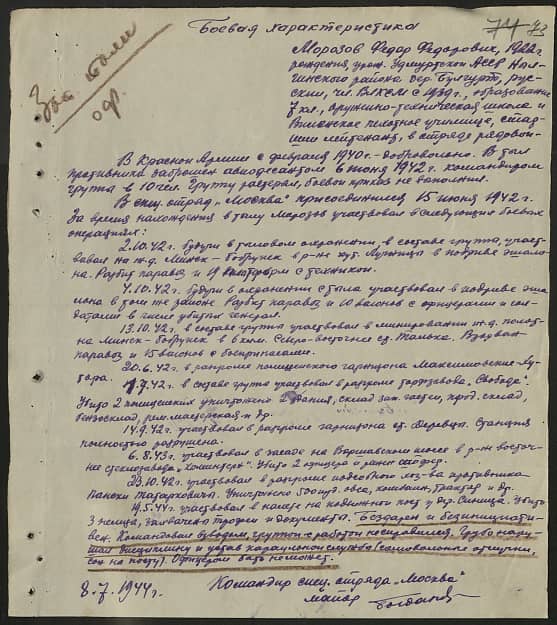 Боевая характеристика
74 73
Зав. 
офр.
Морозов Федор Федорович, 1922г.
рождения, урож. Удмуртской АССР Нал-
гинского района дер. Булгурт, рус-
ский, чл. ВЛКСМ с 1939г., образование
7 кл., оружейно-техническая школа и
пехотное училище, стар-
ший лейтенант, в отряде рядовой-
В Красной Армии с февраля 1940г. - добровольно. В тыл
противника заброшен авиодесантом 6 июня 1942г. командиром
группы в 10 чел. Группу растерял, боевой приказ не выполнил.
В спец. отряд „Москва" присоединился 15 июня 1942г.
За время нахождения в тылу Морозов участвовал в следующих боевых
операциях:
2.10.42г. будучи в тыловом охранении, в составе группы, участ-
вовал на ж.д. Минск - Бобруйск в р-не хут. в подрыве эшело-
на. Разбит паровоз и 19 с техникой.
4.10.42г. будучи в охранении с тыла участвовал в подрыве эше-
лона в том же районе. Разбит паровоз и 10 вагонов с офицерами и сол-
датами в числе убитых генерал.
13.10.42г. в составе группы участвовал в минировании ж.д. полот-
на Минск - Бобруйск в 6 клм. северо-восточнее ст. Талька. Взорван
паровоз и 15 вагонов с боеприпасами.
20.6.42г. в разгроме полицейского гарнизона Максимовские Ху-
тора.
1.7.42г. в составе группы участвовал в разгроме торфзавода „Свобода".
Убито 2 полицейских уничтожено 2 здания, склад зап. частей, прод. склад,
бензосклад, рем. мастерская и др.
14.9.42г. участвовал в разгроме гарнизона ст. Деревцы. Станция
полностью разрушена.
6.8.43г. участвовал в засаде на Варшавском шоссе в р-не восточ-
нее стеклозавода „Коминтерн". Убито 2 офицера и ранен шофер.
23.10.42г. участвовал в разгроме подсобного хоз-ва противника
Татарковичи. Уничтожено 500 пуд. овса, трактор и др.
19.5.44г. участвовал в налете на подвижной пост у дер. Синица. Убиты
3 немца, захвачено трофеи и документы. Бездарен и безинициати-
вен. Командовал взводом, группой с работой не справился. Грубо нару-
шал дисциплину и устав караульной службы (самовольные отлучки,
сон на посту). Офицером быть не может.
8.7.1944г. Командир спец. отряда „Москва"
майор